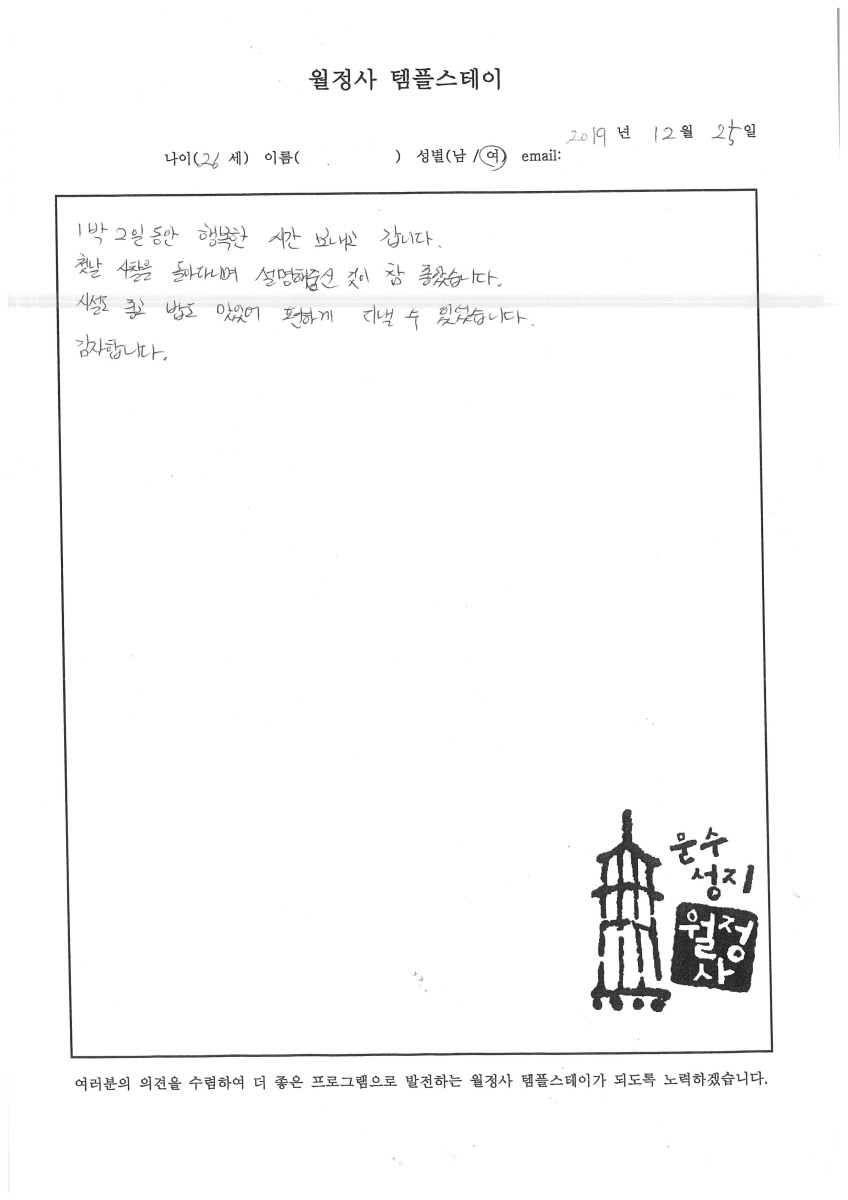 월정사 템플스테이
2019 년 12 월 25 일
나이(26 세) 이름( ) 성별(남 /여) email:
1박 2일 동안 행복한 시간 보내고 갑니다.
첫날 사찰을 돌아다니며 설명해주신 것이 참 좋았습니다.
시설도 좋고 밥도 맛있어 편하게 지낼 수 있었습니다.
감사합니다.
문수
성지
월정
사
여러분의 의견을 수렴하여 더 좋은 프로그램으로 발전하는 월정사 템플스테이가 되도록 노력하겠습니다.